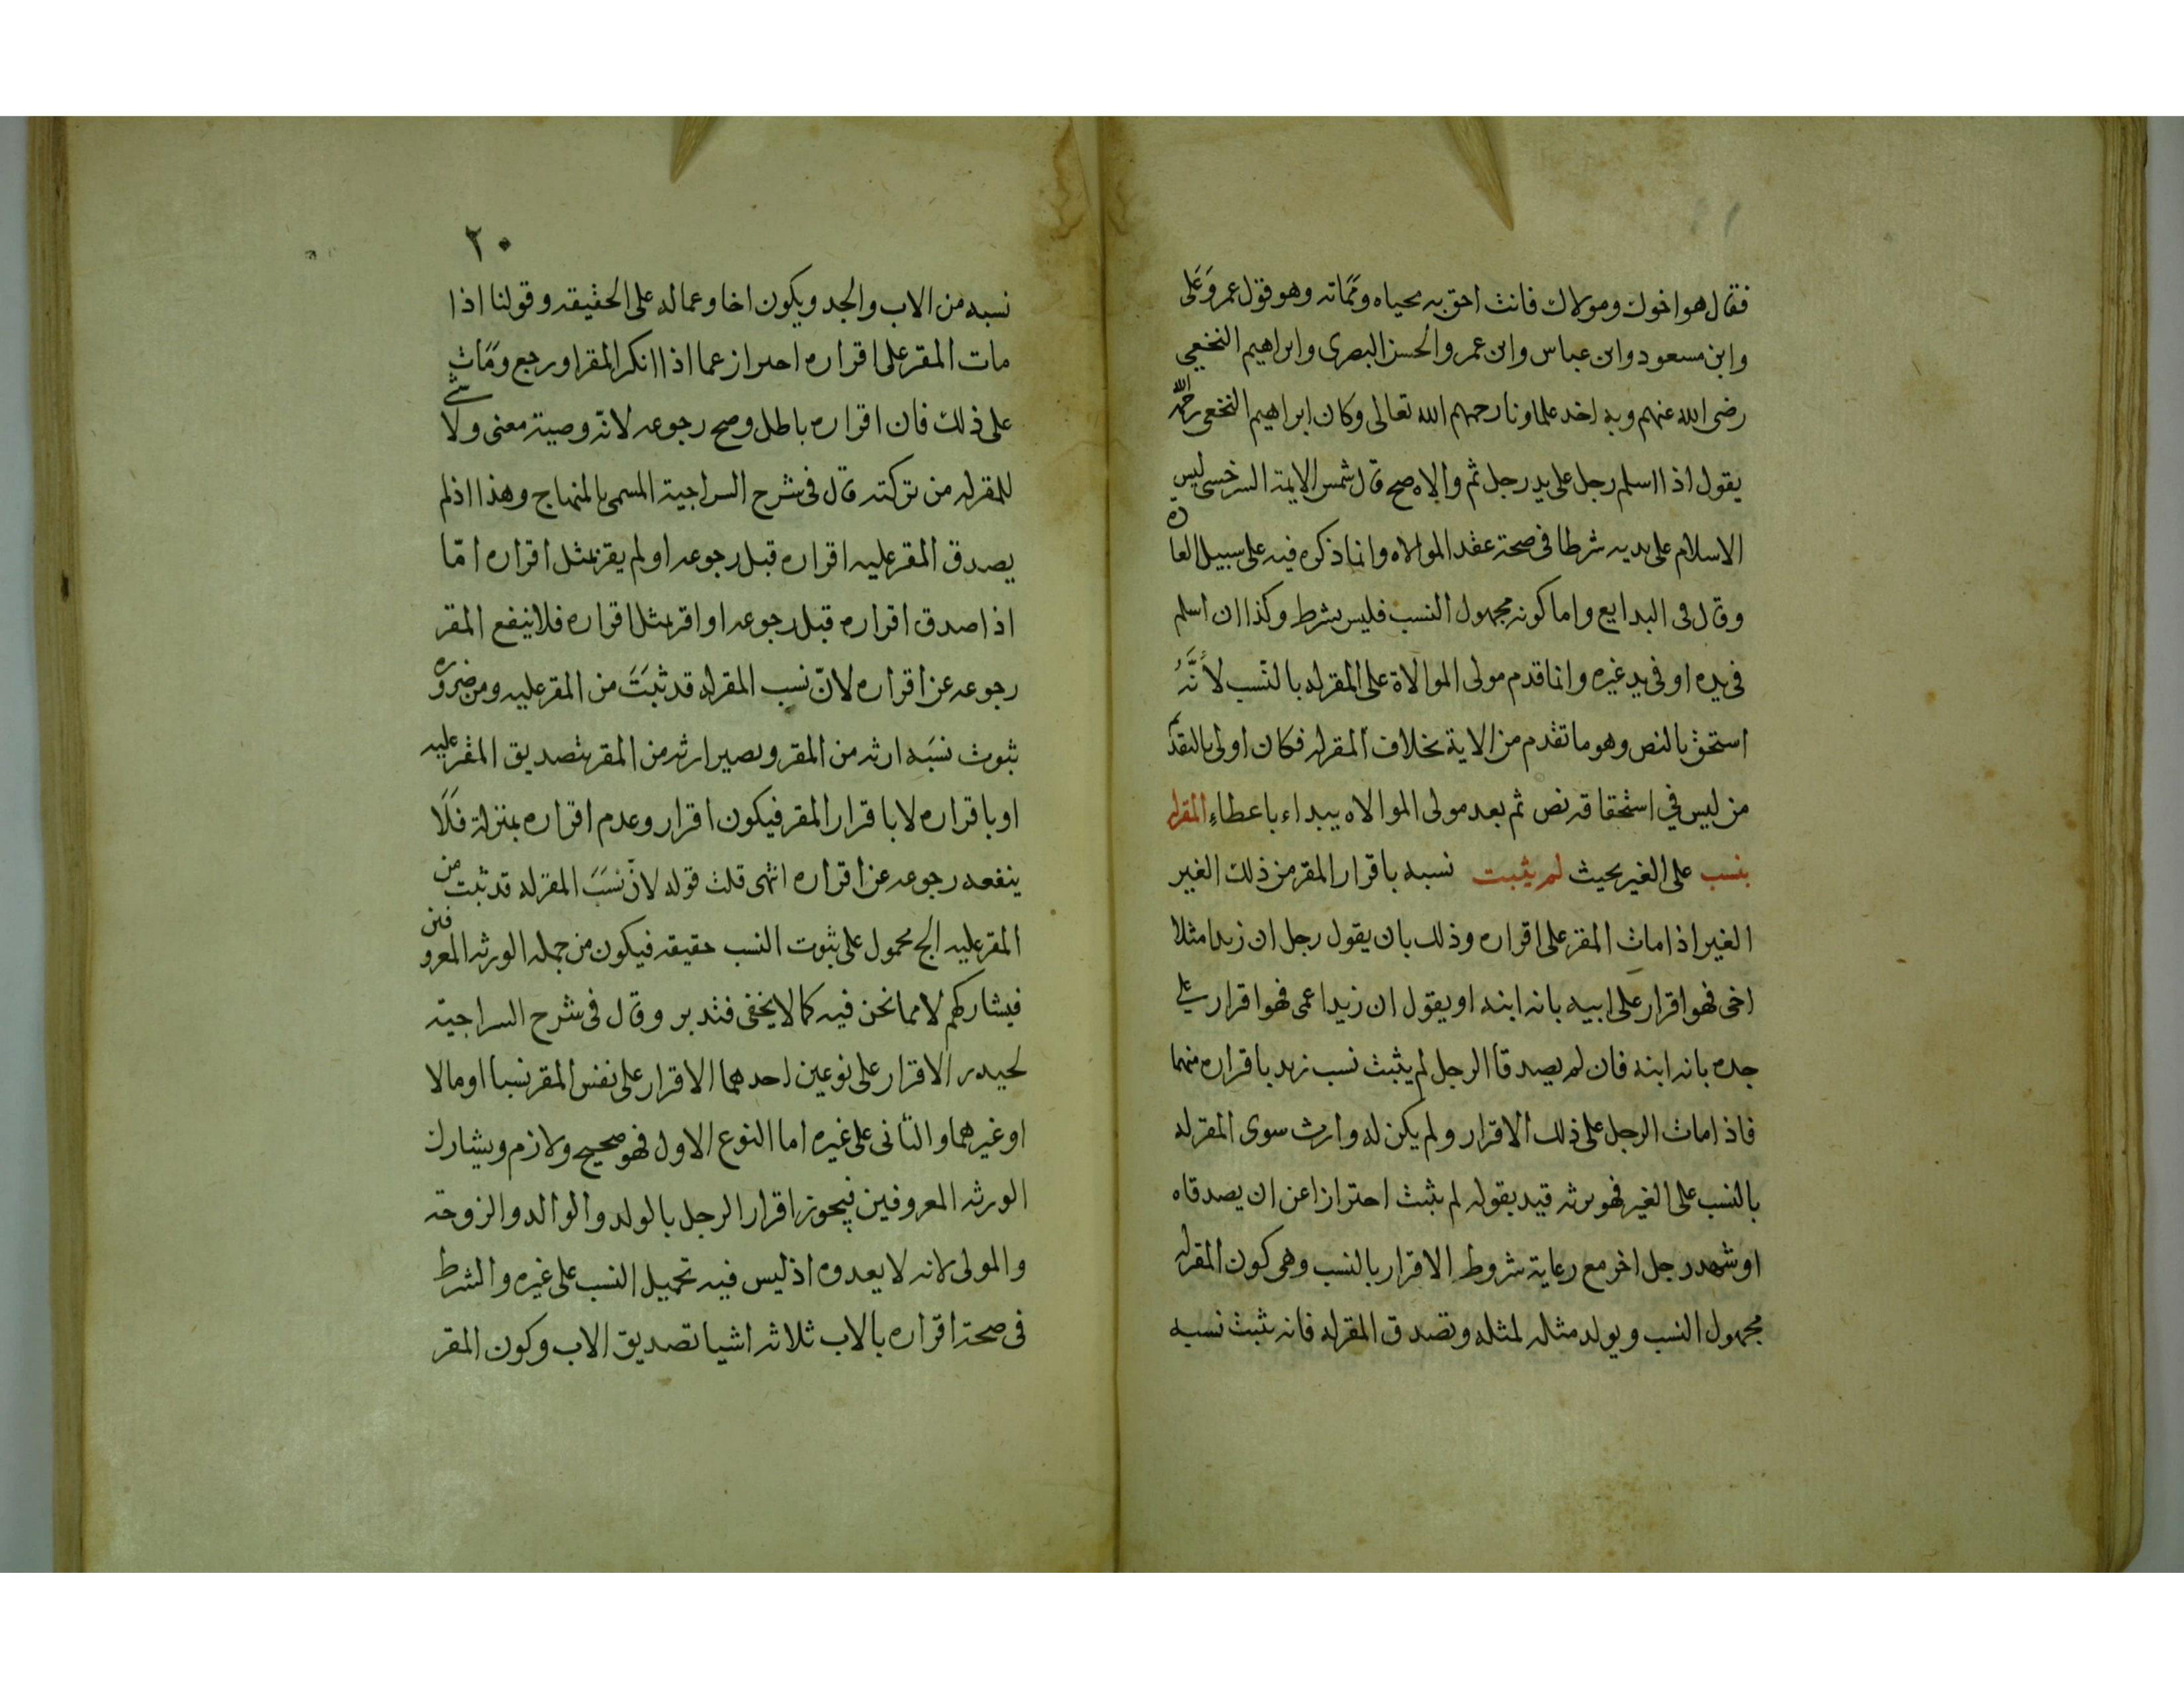 فقال هو اخوك ومولاك فانت احق به محياه ومماته وهو قول عمر وعلى
وابن مسعود وابن عباس وابن عمر والحسن البصرى وابراهيم النخعى
رضى الله عنهم وبه اخذ علماونا رحمهم الله تعالى وكان ابراهيم النخعى رحمه الله
يقول اذا اسلم رجل على يد رجل ثم والاه صح قال شمس الايمة السرخسى ليس
الاسلام على يديه شرطا فى صحة عقد الموالاه وانما ذكره فيه على سبيل العاده
وقال فى البدايع واما كونه مجهول النسب فليس بشرط وكذا ان اسلم
فى يده او فى يد غيره وانما قدم مولى الموالاة على المقر له بالنسب لأنَّهُ
استحق بالنص وهو ما تقدم من الاية بخلاف المقر له فكان اولى بالتقدم
من ليس فى استحقاقه نص ثم بعد مولى الموالاه يبداء باعطاء المقر له
بنسب على الغير بحيث لم يثبت نسبه باقرار المقر من ذلك الغير
الغير اذا مات المقر على اقراره وذلك بان يقول رجل ان زيدا مثلا
اخى فهو اقرار على ابيه بانه ابنه او يقول ان زيدا عمى فهو اقرار على
جده بانه ابنه فان لم يصدقا الرجل لم يثبت نسب زيد باقراره منهما
فاذا مات الرجل على ذلك الاقرار ولم يكن له وارث سوى المقر له
بالنسب على الغير فهو يرثه قيد بقوله لم يثبت احترازا عن ان يصدقاه
او شهد رجل اخر مع رعاية شروط الاقرار بالنسب وهى كون المقر له
مجهول النسب ويولد مثله لمثله وتصدق المقر له فانه يثبت نسبه
٢٠
نسبه من الاب والجد ويكون اخا وعما له على الحقيقه وقولنا اذا
مات المقر على اقراره احتراز عما اذا انكر المقر او رجع ومات
على ذلك فان اقراره باطل وصح رجوعه لانه وصية معنى ولا شئ
للمقر له من تركته قال فى شرح السراجية المسمى بالمنهاج وهذا اذ لم
يصدق المقر عليه اقراره قبل رجوعه او لم يقر بمثل اقراره امّا
اذا صدق اقراره قبل رجوعه او اقر بمثل اقراره فلا ينفع المقر
رجوعه عن اقراره لانّ نسب المقر له قد ثبَتَ من المقر عليه ومن ضروره
ثبوت نسَبه ارثه من المقر ويصير ارثه من المقر بتصديق المقر عليه
او باقراره لا باقرار المقر فيكون اقرار وعدم اقراره بمنزلة فَلَا
ينفعه رجوعه عن اقراره انتهى قلت قوله لانّ نسَبَ المقر له قد ثبت من
المقر عليه الخ محمول على ثبوت النسب حقيقه فيكون من جمله الورثه المعروفين
فيشاركهم لا مما نحن فيه كما لا يخفى فتدبر وقال فى شرح السراجية
لحيدر الاقرار على نوعين احدهما الاقرار على نفس المقر نسبا او مالا
او غيرهما والثانى على غيره اما النوع الاول فهو صحيح ولازم ويشارك
الورثه المعروفين فيجوز اقرار الرجل بالولد والوالد والزوجة
والمولى لانه لا يعدوه اذ ليس فيه تحميل النسب على غيره والشرط
فى صحة اقراره بالاب ثلاثه اشيا تصديق الاب وكون المقر